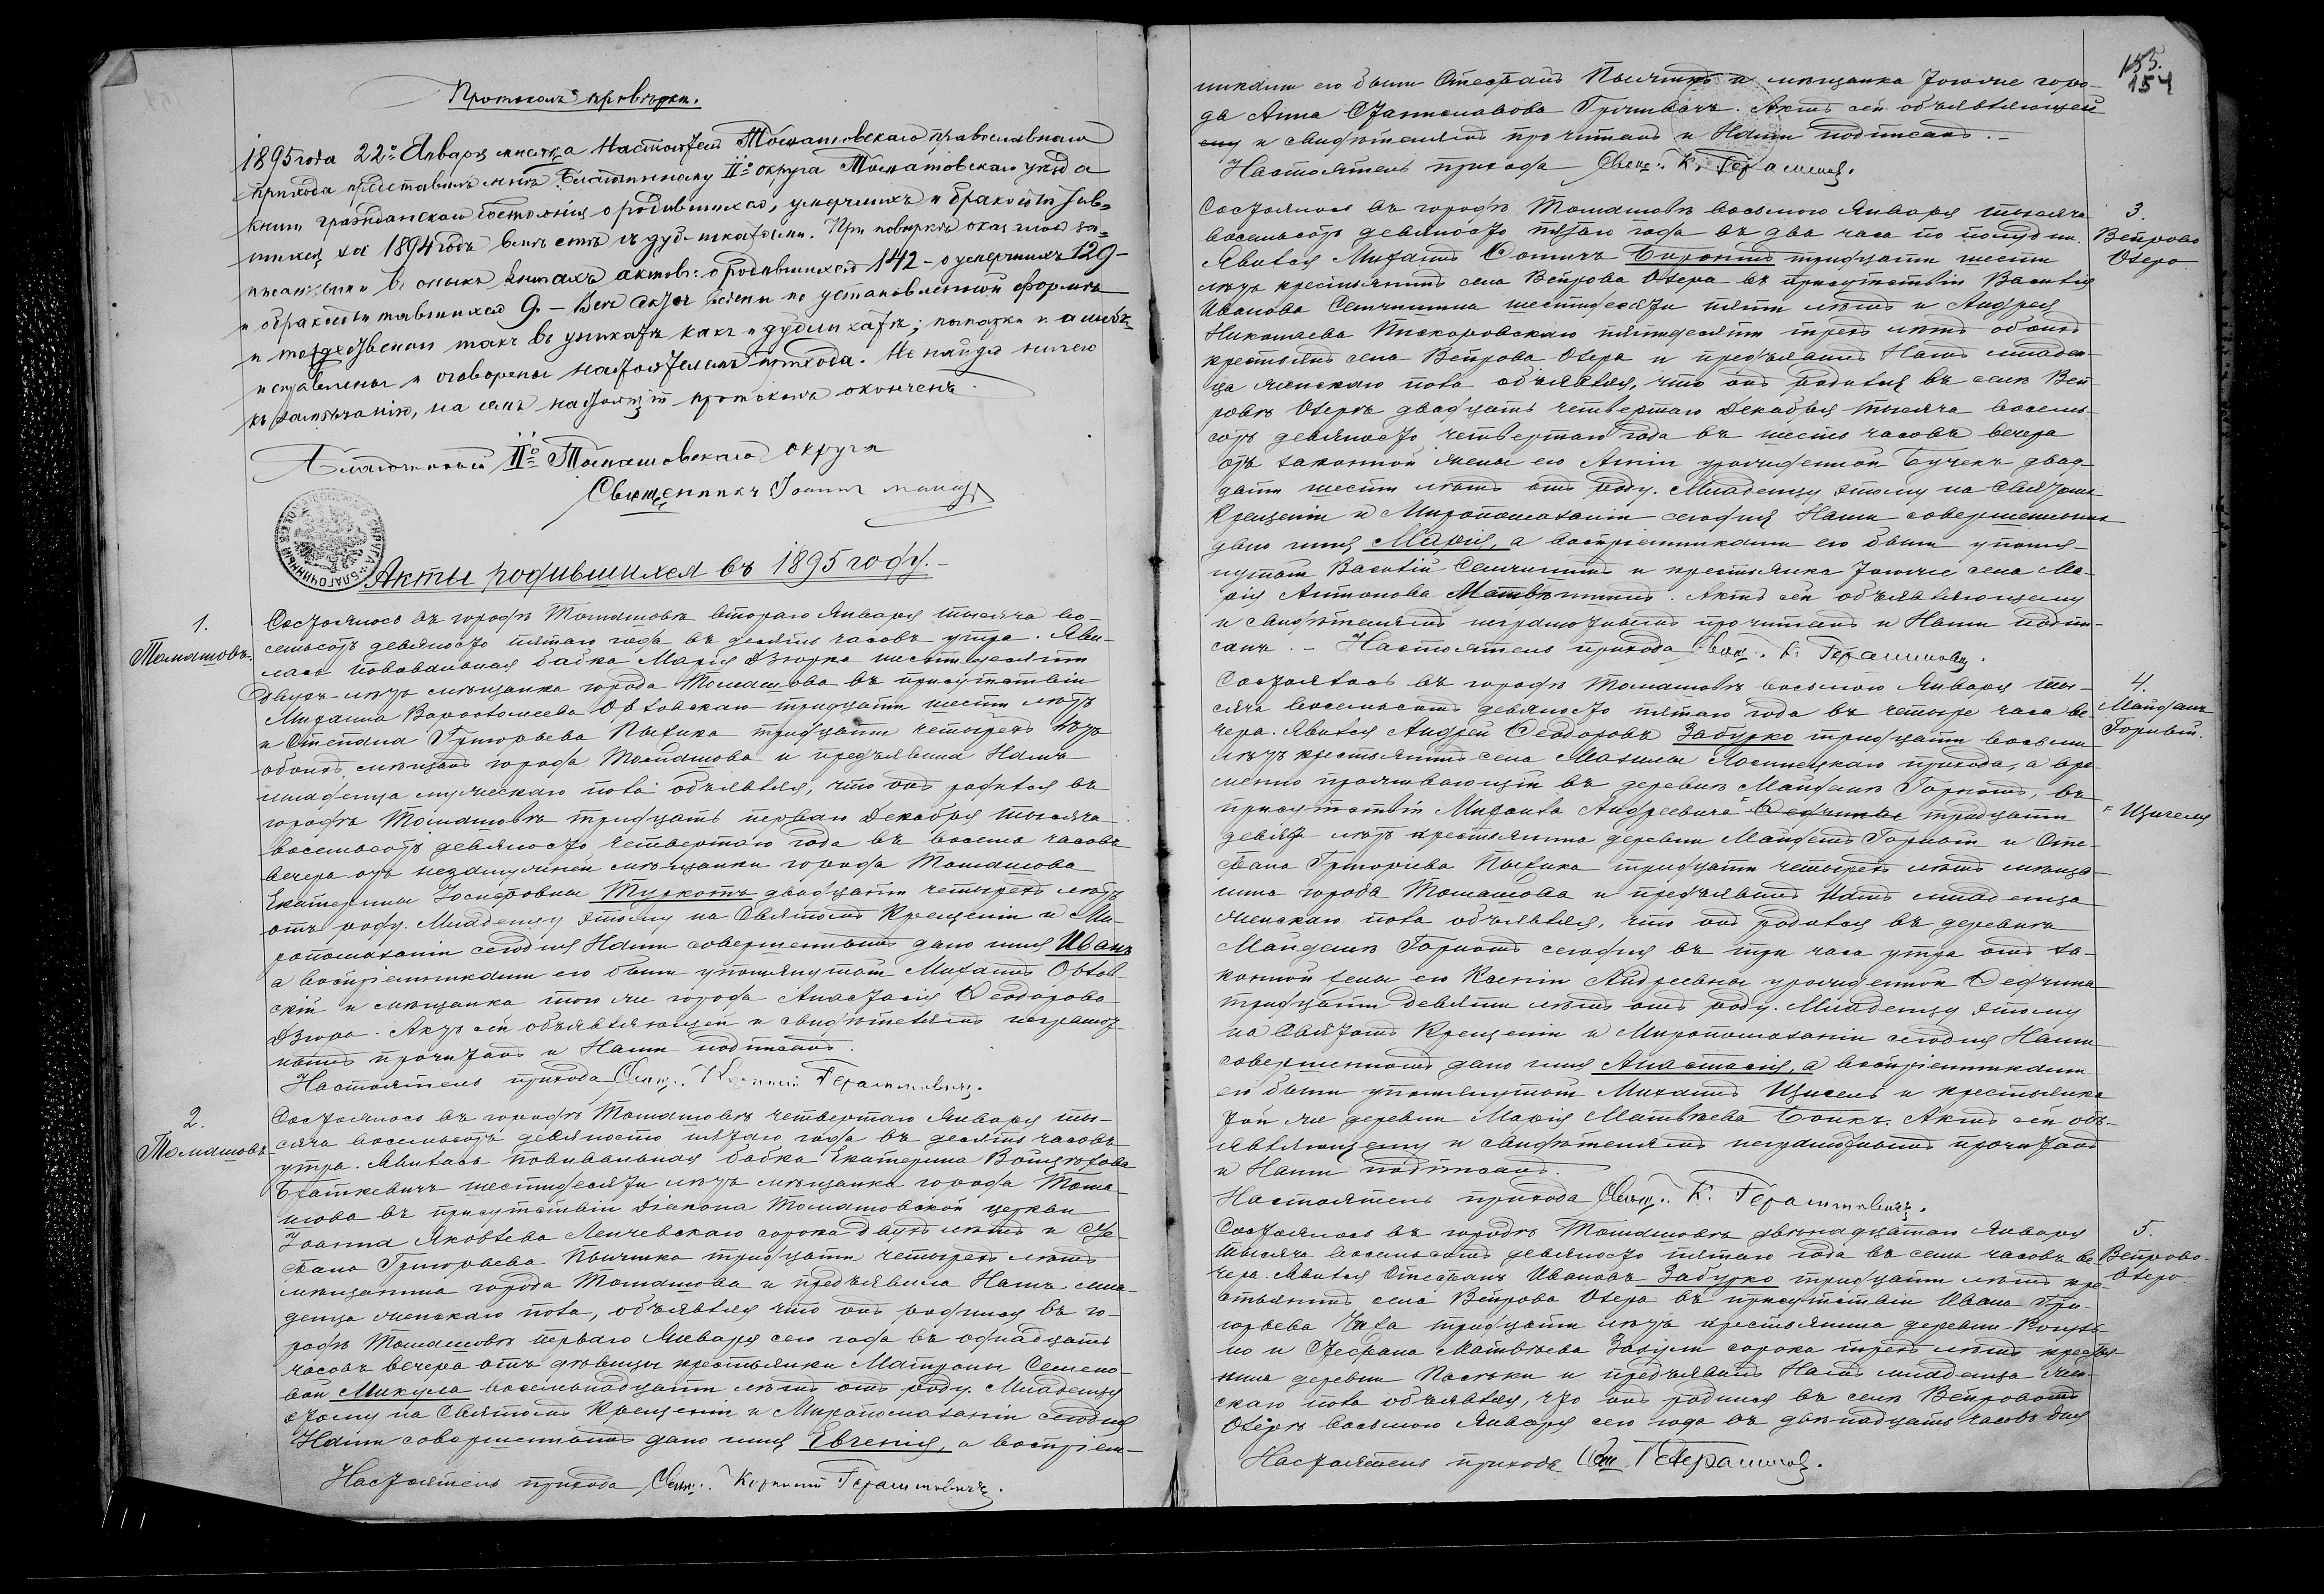 Протоколъ провѣрки.
1895 года 22го Января мѣсяца Настоятель Томашовскаго православнаго
прихода представилъ мнѣ Благочинному IIго округа Томашовскаго уѣзда
книги гражданскаго состоянія о родившихся, умершихъ и бракосочетав-
шихся за 1894 годъ вмѣстѣ съ дубликатами. При повѣркѣ оказалось за-
писанными въ оныхъ книгахъ актовъ: о родившихся 142 – о умершихъ 129 –
и бракосочетавшихся 9. – Всѣ акты по установленной формѣ
и такъ въ уникатѣ какъ и дубликатѣ; помарки и ошибки
исправлены и оговорены настоятелемъ прихода. Не найдя ничего
къ замѣчанію, на семъ настоящій протоколъ оконченъ.
Благочинный IIго Томашовскаго округа
Священникъ Іоаннъ
Акты родившихся въ 1895 году. –
1.
Томашовъ.
Состоялось въ городѣ Томашовѣ втораго Января тысяча во-
семьсотъ девяносто пятаго года въ десять часовъ утра. Яви-
лась повивальная бабка Марія Дзюрка шестидесяти
двухъ лѣтъ мѣщанка города Томашова въ присутствіи
Михаила Варѳоломеева тридцати шести лѣтъ
и Стефана Григорьева Пысика тридцати четырехъ лѣтъ
обоихъ мѣщанъ города Томашова и предъявила Намъ
младенца мужескаго пола объявляя, что онъ родился въ
городѣ Томашовѣ тридцать перваго Декабря тысяча
восемьсотъ девяносто четвертаго года въ восемь часовъ
вечера отъ незамужней мѣщанки города Томашова
Екатерины Іосифовны Туркотъ двадцати четырехъ лѣтъ
отъ роду. Младенцу этому на Святомъ Крещеніи и Ми-
ропомазаніи сегодня Нами совершенныхъ дано имя Иванъ
а воспріемниками его были упомянутый Михаилъ
и мѣщанка того же города Анастасія Ѳеодорова
Дзюра. Актъ сей объявляющей и свидѣтелямъ неграмот-
нымъ прочитанъ и Нами подписанъ.
Настоятель прихода Свящ. Герасимовичъ.
2.
Томашовъ
Состоялось въ городѣ Томашовѣ четвертаго Января ты-
сяча восемьсотъ девяносто пятаго года въ десять часовъ
утра. Явилась повивальная бабка Екатерина
Браткевичъ шестидесяти лѣтъ мѣщанка города Тома-
шова въ присутствіи Діакона Томашовской церкви
Іоанна Яковлева Ленчевскаго сорока двухъ лѣтъ и Сте-
фана Григорьева тридцати четырехъ лѣтъ
мѣщанина города Томашова и предъявила Намъ мла-
денца женскаго пола, объявляя что онъ родился въ го-
родѣ Томашовѣ перваго Января сего года въ однадцать
часовъ вечера отъ дѣвицы крестьянки Матроны Семено-
вой Микула восемьнадцати лѣтъ отъ роду. Младенцу
этому на Святомъ Крещеніи и Миропомазаніи сегодня
Нами совершенныхъ дано имя Евгенія, а воспріем-
Настоятель прихода Свящ. Герасимовичъ.
155.
154
никами его были Стефанъ и мѣщанка того же горо-
да Анна Станиславова Акть сей объявляющей
и свидѣтелямъ прочитанъ и Нами подписанъ. –
Настоятель прихода Свящ. К. Герасимов.
3.
Вейрово
Озеро
Состоялось въ городѣ Томашовѣ восьмого Января тысяча
восемьсотъ девяносто пятаго года въ два часа по полудни.
Явился Михаилъ тридцати шести
лѣтъ крестьянинъ села Вейрова Озера въ присутствіи Василія
Иванова Сенчишина шестидесяти пяти лѣтъ и Андрея
Николаева Пискоровскаго пятидесяти трехъ лѣтъ обоихъ
крестьянъ села Вейрова Озера и предъявилъ Намъ младен-
ца женскаго пола объявляя, что онъ родился въ селѣ Вей-
ровѣ Озерѣ двадцать четвертаго Декабря тысяча восемь-
сотъ девяносто четвертаго года въ шесть часовъ вечера
отъ законной жены его Анны урожденной двад-
цати шести лѣтъ отъ роду. Младенцу этому на Святомъ
Крещеніи и Миропомазаніи сегодня Нами совершенныхъ
дано имя Марія, а воспріемниками его были упомя-
нутый Василій Сенчишинъ и крестьянка того же села Ма-
рія Антонова Актъ сей объявляющему
и свидѣтелямъ неграмотнымъ прочитанъ и Нами подпи-
санъ. – Настоятель прихода Свящ. К. Герасимовъ.
4.
Майданъ
Горный.
Состоялось въ городѣ Томашовѣ восьмого Января ты-
сяча восемьсотъ девяносто пятаго года въ четыре часа ве-
чера. Явился Андрей Ѳеодоровъ Забурко тридцати восьми
лѣтъ крестьянинъ села прихода, а вре-
менно проживающій въ деревнѣ Майданѣ Горномъ, въ
присутствіи Михаила Андреевича тридцати
" Щисель
девяти лѣтъ крестьянина деревни Майданъ Горный и Сте-
фана Григоріева Пысика тридцати четырехъ лѣтъ мѣща-
нина города Томашова и предъявилъ Намъ младенца
женскаго пола объявляя, что онъ родился въ деревнѣ
Майданѣ Горномъ сегодня въ три часа утра отъ за-
конной жены его Ксеніи Андреевны урожденной Федчина
тридцати девяти лѣтъ отъ роду. Младенцу этому
на Святомъ Крещеніи и Миропомазаніи сегодня Нами
совершенныхъ дано имя Анастасія, а воспріемниками
его были упомянутый Михаилъ Щисель и крестьянка
той же деревни Марія Матвѣева Актъ сей объ-
являющему и свидѣтелямъ неграмотнымъ прочитанъ
и Нами подписанъ.
Настоятель прихода Свящ. К. Герасимовичъ.
5.
Вейрово-
Озеро.
Состоялось въ городѣ Томашовѣ двѣнадцатаго Января
тысяча восемьсотъ девяносто пятаго года въ семь часовъ ве-
чера. Явился Стефанъ Ивановъ Забурко тридцати лѣтъ кре-
стьянинъ села Вейрова Озера въ присутствіи Ивана Гри-
горьева тридцати лѣтъ крестьянина деревни
и Стефана Матвѣева сорока трехъ лѣтъ крестья-
нина деревни Пасѣки и предъявилъ Намъ младенца жен-
скаго пола объявляя, что онъ родился въ селѣ Вейровомъ
Озерѣ восьмого Января сего года въ двѣнадцать часовъ дня
Настоятель прихода Свящ.